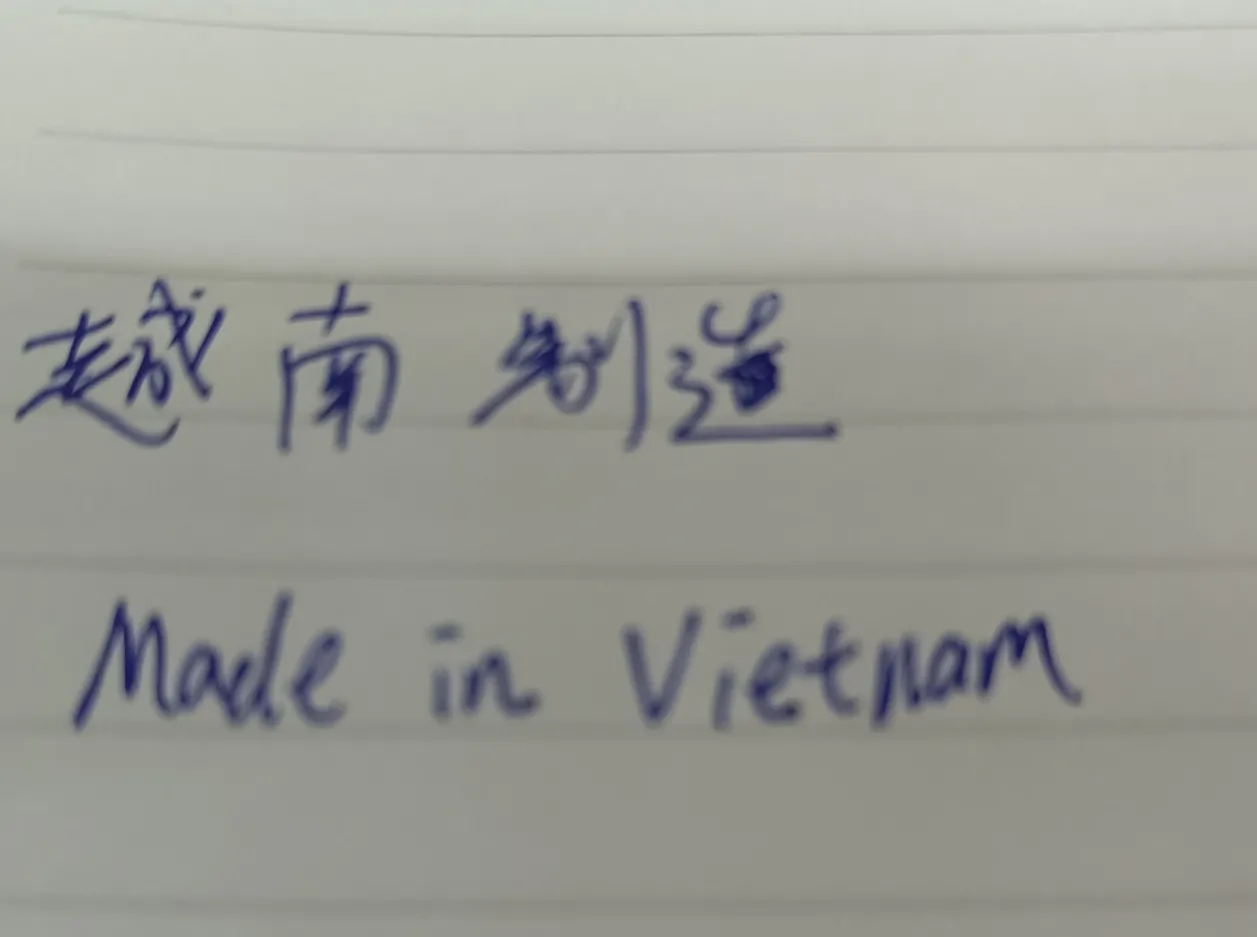 越南制造
Made in Vietnam